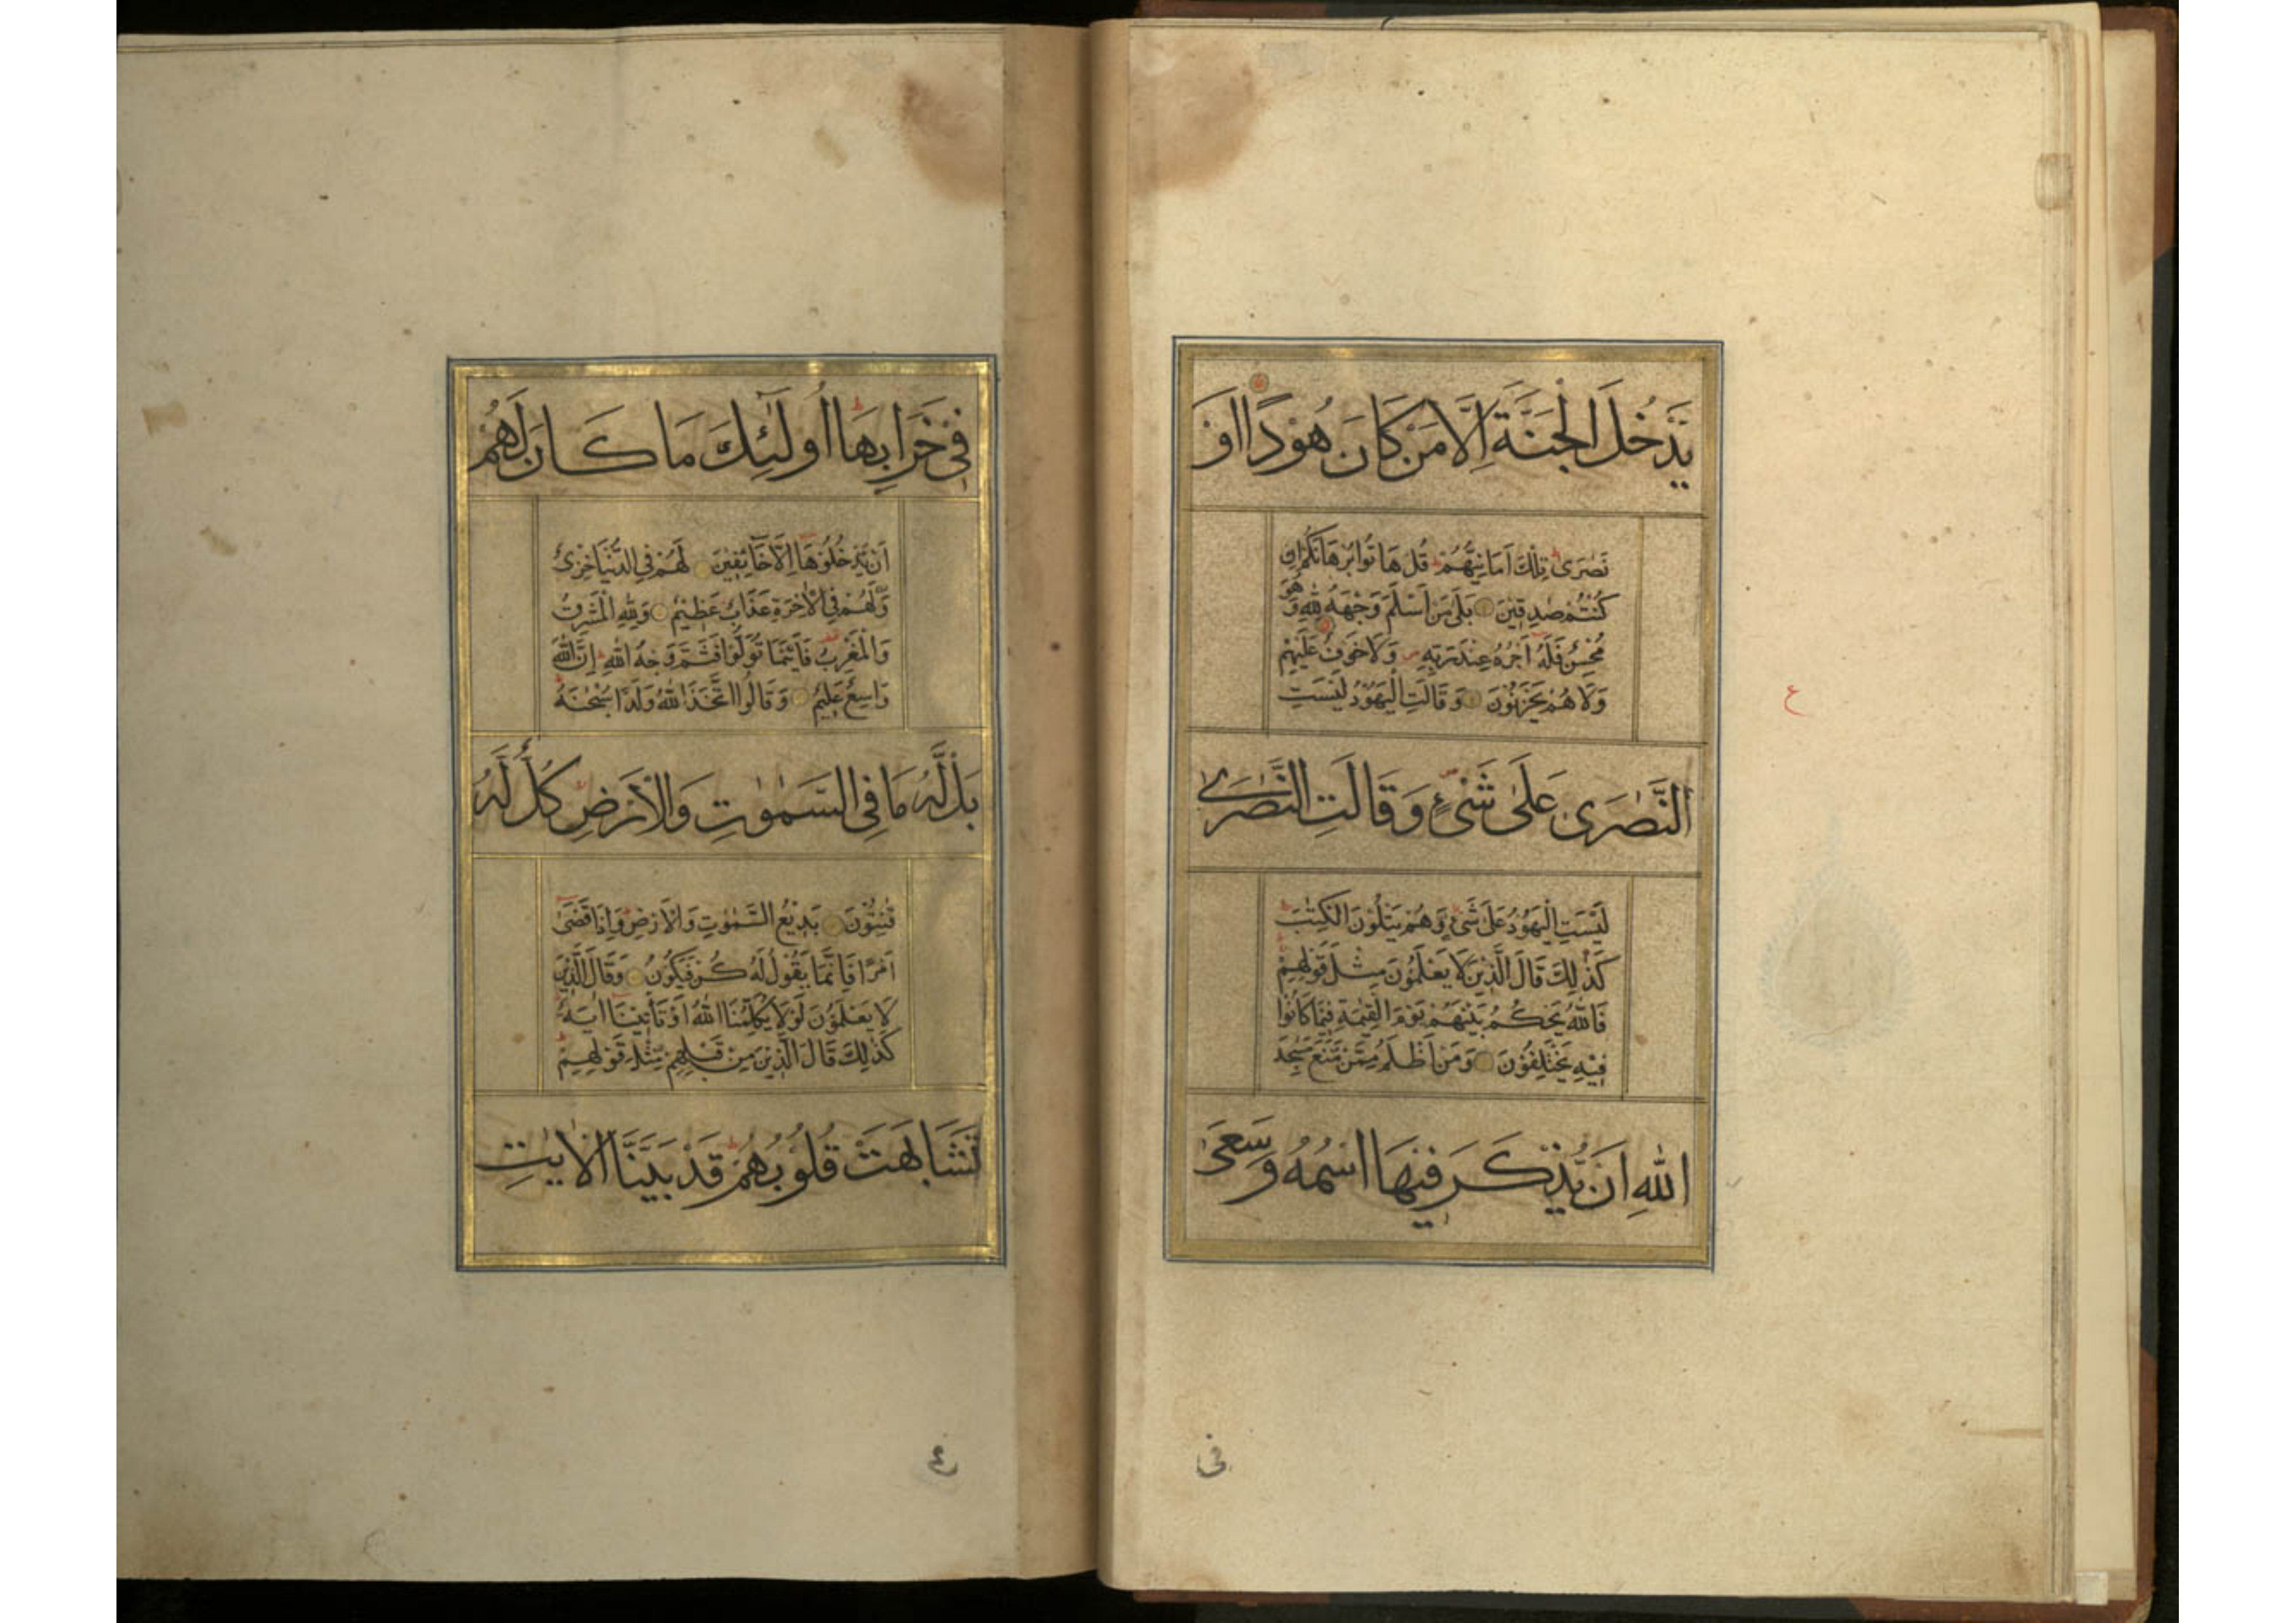 يَدْخُلَ الْجَنَّةَ اِلَّا مَنْ كَانَ هُوْدًا اَوْ
نَصٰرٰى تِلْكَ اَمَانِيُّهُمْ قُلْ هَاتُوا بُرْهَانَكُمْ اِنْ
كُنْتُمْ صٰدِقِيْنَ بَلٰى مَنْ اَسْلَمَ وَجْهَهُ لِلّٰهِ وَهُوَ
مُحْسِنٌ فَلَهُ اَجْرُهُ عِنْدَ رَبِّهِ وَلَا خَوْفٌ عَلَيْهِمْ
وَلَا هُمْ يَحْزَنُوْنَ وَقَالَتِ الْيَهُوْدُ لَيْسَتِ
النَّصٰرٰى عَلٰى شَىْءٍ وَقَالَتِ النَّصٰرٰى
لَيْسَتِ الْيَهُوْدُ عَلٰى شَىْءٍ وَهُمْ يَتْلُوْنَ الْكِتٰبَ
كَذٰلِكَ قَالَ الَّذِيْنَ لَا يَعْلَمُوْنَ مِثْلَ قَوْلِهِمْ
فَاللّٰهُ يَحْكُمُ بَيْنَهُمْ يَوْمَ الْقِيٰمَةِ فِيْمَا كَانُوْا
فِيْهِ يَخْتَلِفُوْنَ وَمَنْ اَظْلَمُ مِمَّنْ مَّنَعَ مَسٰجِدَ
اللّٰهِ اَنْ يُّذْكَرَ فِيْهَا اسْمُهُ وَسَعٰى
فى
ع
فِى خَرَابِهَا اُولٰٓئِكَ مَا كَانَ لَهُمْ
اَنْ يَّدْخُلُوْهَا اِلَّا خَآئِفِيْنَ لَهُمْ فِى الدُّنْيَا خِزْىٌ
وَّلَهُمْ فِى الْاٰخِرَةِ عَذَابٌ عَظِيْمٌ وَلِلّٰهِ الْمَشْرِقُ
وَالْمَغْرِبُ فَاَيْنَمَا تُوَلُّوْا فَثَمَّ وَجْهُ اللّٰهِ اِنَّ اللّٰهَ
وَاسِعٌ عَلِيْمٌ وَقَالُوا اتَّخَذَ اللّٰهُ وَلَدًا سُبْحٰنَهُ
بَلْ لَّهُ مَا فِى السَّمٰوٰتِ وَالْاَرْضِ كُلٌّ لَّهُ
قٰنِتُوْنَ بَدِيْعُ السَّمٰوٰتِ وَالْاَرْضِ وَاِذَا قَضٰى
اَمْرًا فَاِنَّمَا يَقُوْلُ لَهُ كُنْ فَيَكُوْنُ وَقَالَ الَّذِيْنَ
لَا يَعْلَمُوْنَ لَوْلَا يُكَلِّمُنَا اللّٰهُ اَوْ تَأْتِيْنَا اٰيَةٌ
كَذٰلِكَ قَالَ الَّذِيْنَ مِنْ قَبْلِهِمْ مِّثْلَ قَوْلِهِمْ
تَشَابَهَتْ قُلُوْبُهُمْ قَدْ بَيَّنَّا الْاٰيٰتِ